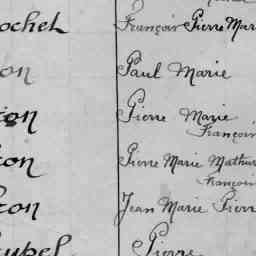 ochet François Pierre Mar
on Paul Marie
on Pierre Marie
François
con Pierre Marie Mathur
François
con Jean Marie Pierr
upel Pierre